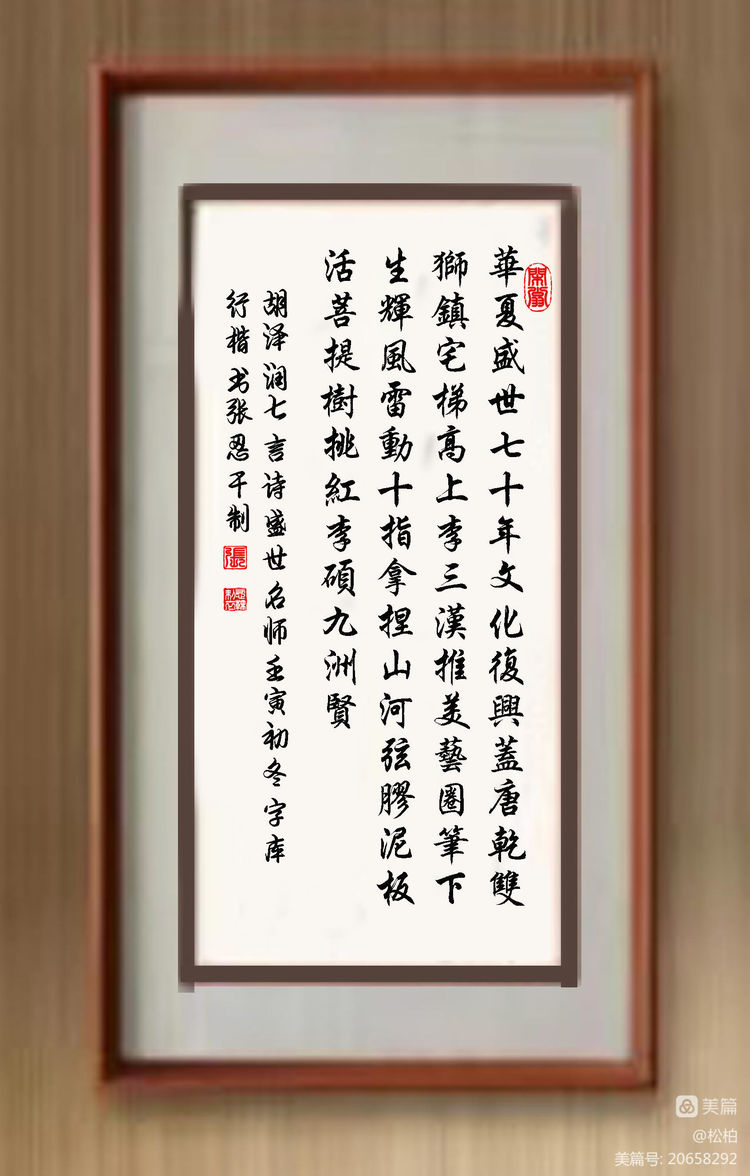 華夏盛世七十年文化復興蓋唐乾雙
獅鎮宅梯高上李三漢推美藝圈筆下
生輝風雷動十指拿捏山河弦膠泥板
活菩提樹挑紅李碩九洲賢
胡泽润七言诗盛世名师壬寅初冬字库
行楷书张忍千制
張
美篇
@松柏
美篇号: 20658292